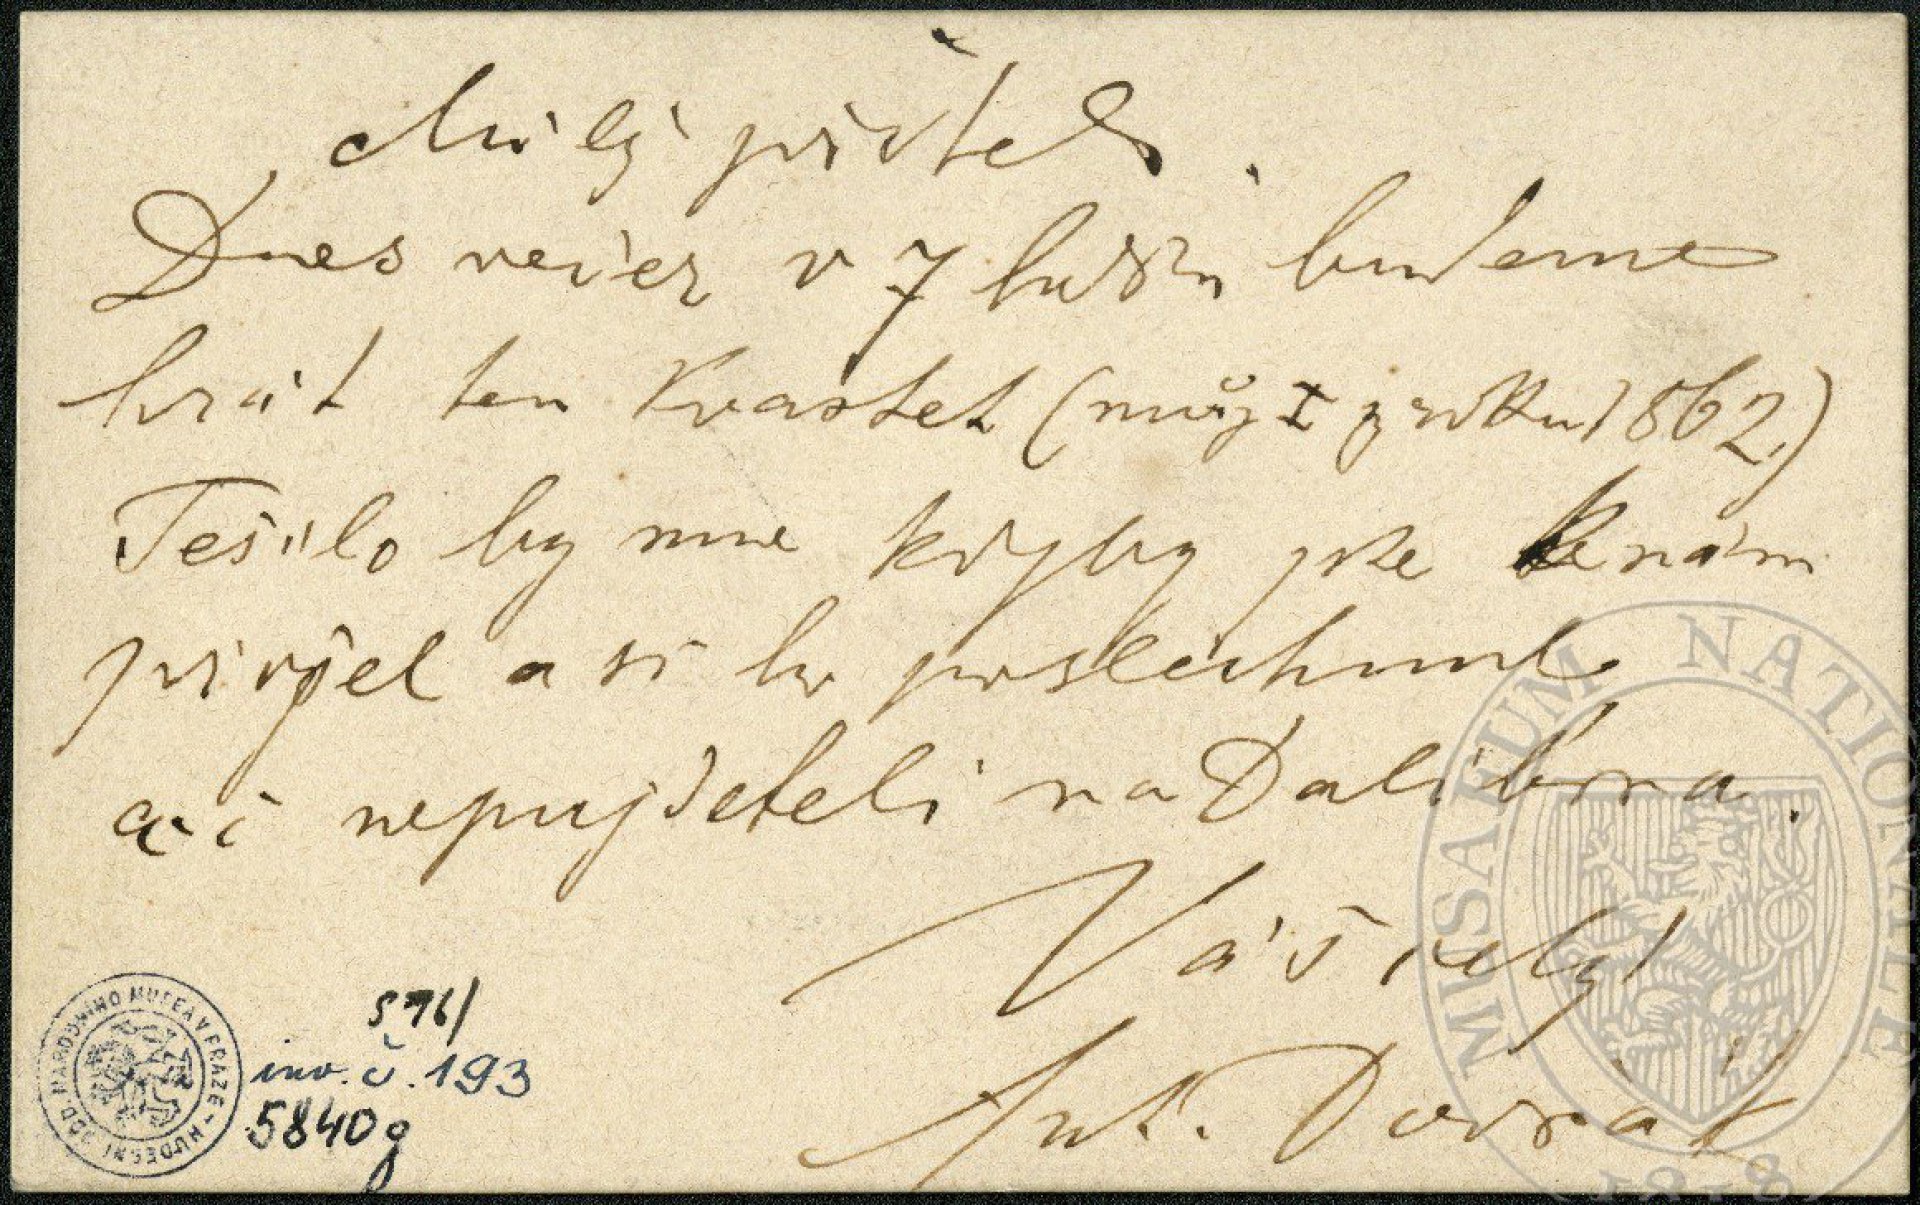 Milý příteli.
Dnes večer v 7 hodin budeme
hrát ten Kvartet (můj I z roku 1862)
Těšilo by mne kdyby jste k nám
přijel a si ho poslechnul
ač i nepujdeteli na Dalibora.
Váš celý
Ant. Dvořák
576/
inv. č. 193
5840 g
HUDEBNÍ ODD. NÁRODNÍHO MUSEA V PRAZE
MUSAEUM NATIONALE
1818